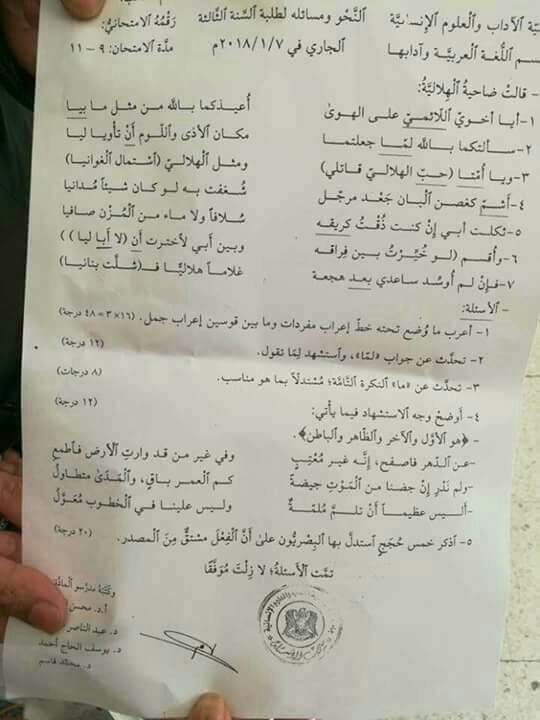 ية الآداب والعلوم الإنسانية النحو ومسائله لطلبة السنة الثالثة رقمه الامتحاني:
سم اللغة العربية وآدابها الجاري في ٢٠١٨/١/٧م مدة الامتحان: ٩ – ١١
- قالت ضاحية الهلالية:
١- أيا أخويّ اللائميّ على الهوى أعيذكما بالله من مثل ما بيا
٢- سألتكما بالله لمّا جعلتما مكان الأذى واللوم أن تأويا ليا
٣- ويا أمتا (حبّ الهلالي قاتلي) ومثل الهلالي (استمال الغوانيا)
٤- أشمّ كغصن البان جَعْد مرجّل شُغفت به لو كان شيئاً مُدانيا
٥- ثكلت أبي إن كنت ذُقْتُ كريقه سُلافاً ولا ماء من المُزْن صافيا
٦- وأقسم (لو خُيّرْتُ بين فراقه وبين أبي لاخترت أن (لا أبا ليا))
٧- فإن لم أُوسّد ساعدي بعد هجعة غلاماً هلالياً فـ(شلّت بنانيا)
- الأسئلة:
١- أعرب ما وُضع تحته خطّ إعراب مفردات وما بين قوسين إعراب جمل. (١٦×٣=٤٨ درجة)
٢- تحدّث عن جواب «لمّا»، واستشهد لِمَا تقول. (١٢ درجة)
٣- تحدّث عن «ما» النكرة التامّة؛ مُستدلّاً بما هو مناسب. (٨ درجات)
٤- أوضح وجه الاستشهاد فيما يأتي: (١٢ درجة)
- ﴿هو الأوّل والآخر والظاهر والباطن﴾.
-عن الدهر فاصفح، إنّه غير مُعْتِبٍ وفي غير من قد وارتِ الأرض فاطمعِ
-ولم نَدْرِ إنْ جضنا من المَوْتِ جيضةً كم العمر باقٍ، والمَدَى متطاولُ
-أليس عظيماً أن تلمّ مُلمّةٌ وليس علينا في الخطوب مُعَوَّل
٥- اذكر خمس حُجَجٍ استدلّ بها البِصْريّون على أنّ الفِعْل مشتقٌّ مِنَ المصدر. (٢٠ درجة)
تمّت الأسئلة؛ لا زِلْتَ مُوَفَّقًا
أ.د. محسن
د. عبد الناصر
د. يوسف الحاج أحمد
د. قاسم